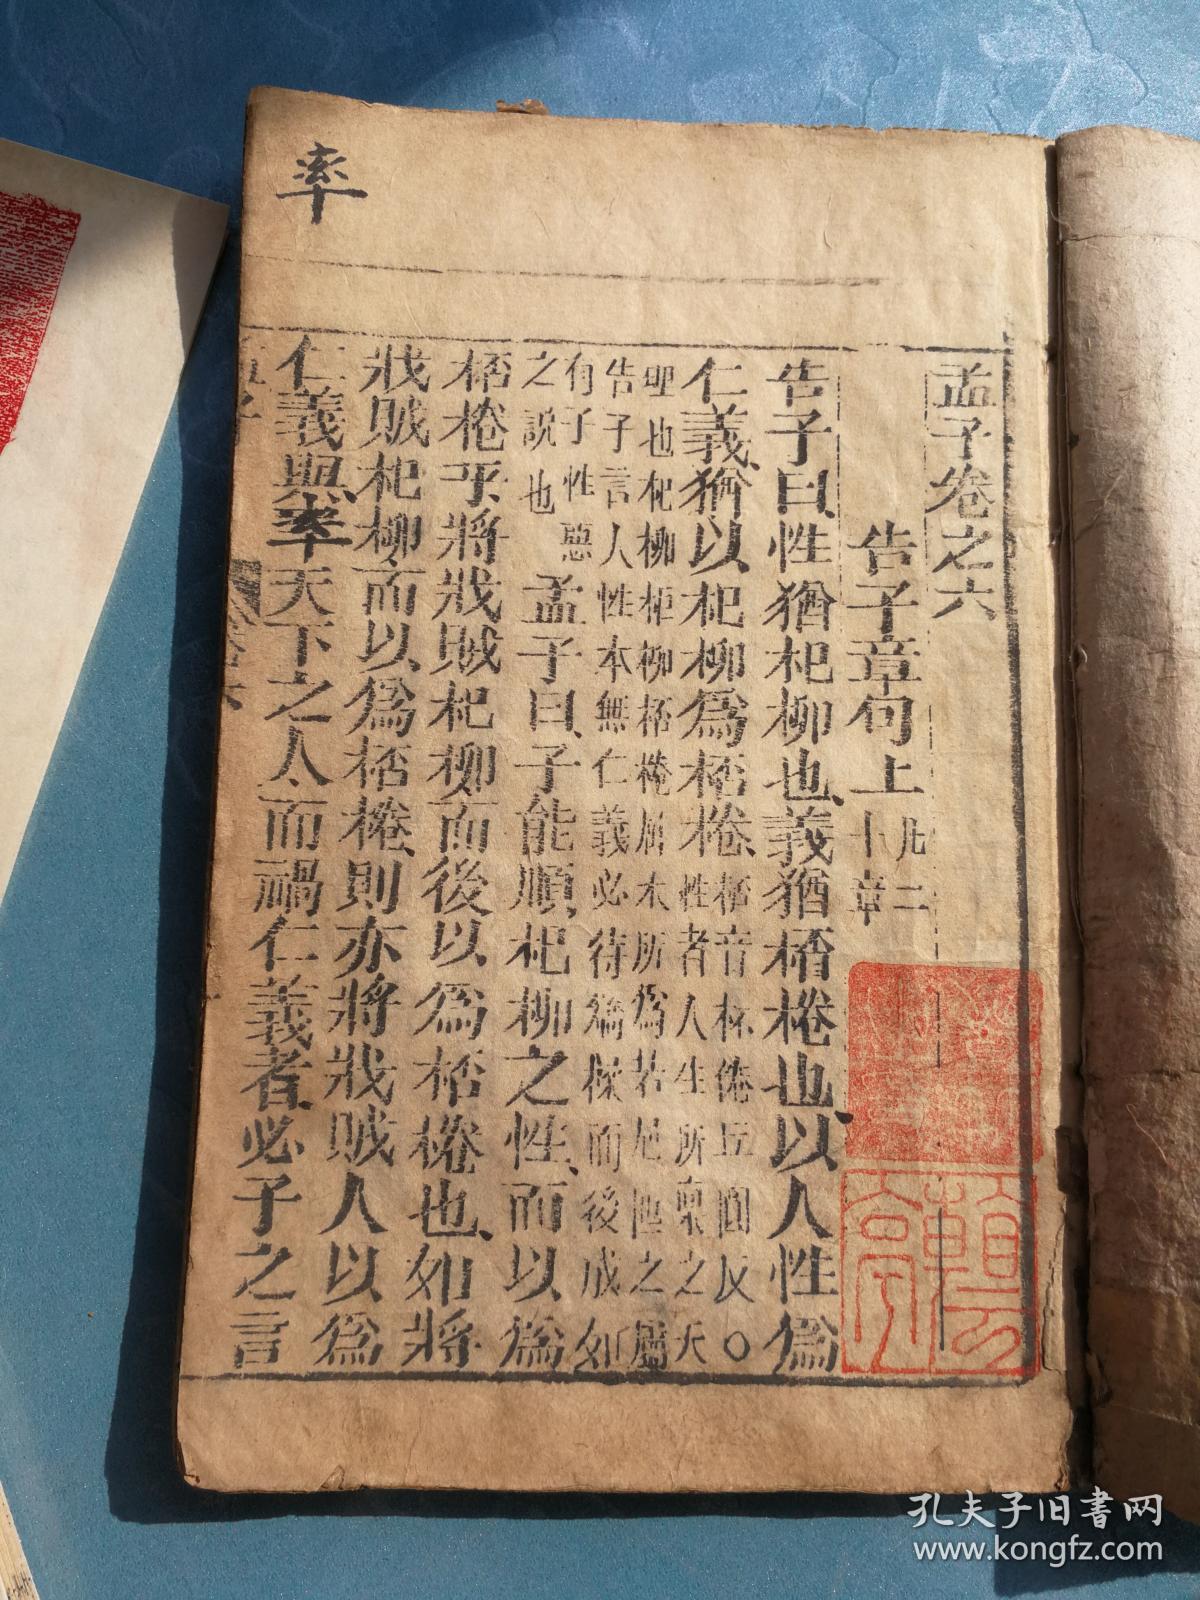 率
孟子卷之六
告子章句上
凡二
十章
告子曰、性猶杞柳也、義猶桮棬也、以人性爲
仁義、猶以杞柳爲桮棬、
桮音杯棬丘圓反○
性者人生所稟之天
理也杞柳柜柳桮棬屈木所爲若巵匜之屬
告子言人性本無仁義必待矯揉而後成如
荀子性惡
之説也
孟子曰、子能順杞柳之性、而以爲
桮棬乎將戕賊杞柳而後以爲桮棬也、如將
戕賊杞柳而以爲桮棬、則亦將戕賊人以爲
仁義與、率天下之人、而禍仁義者、必子之言
孔夫子旧书网
www.kongfz.com